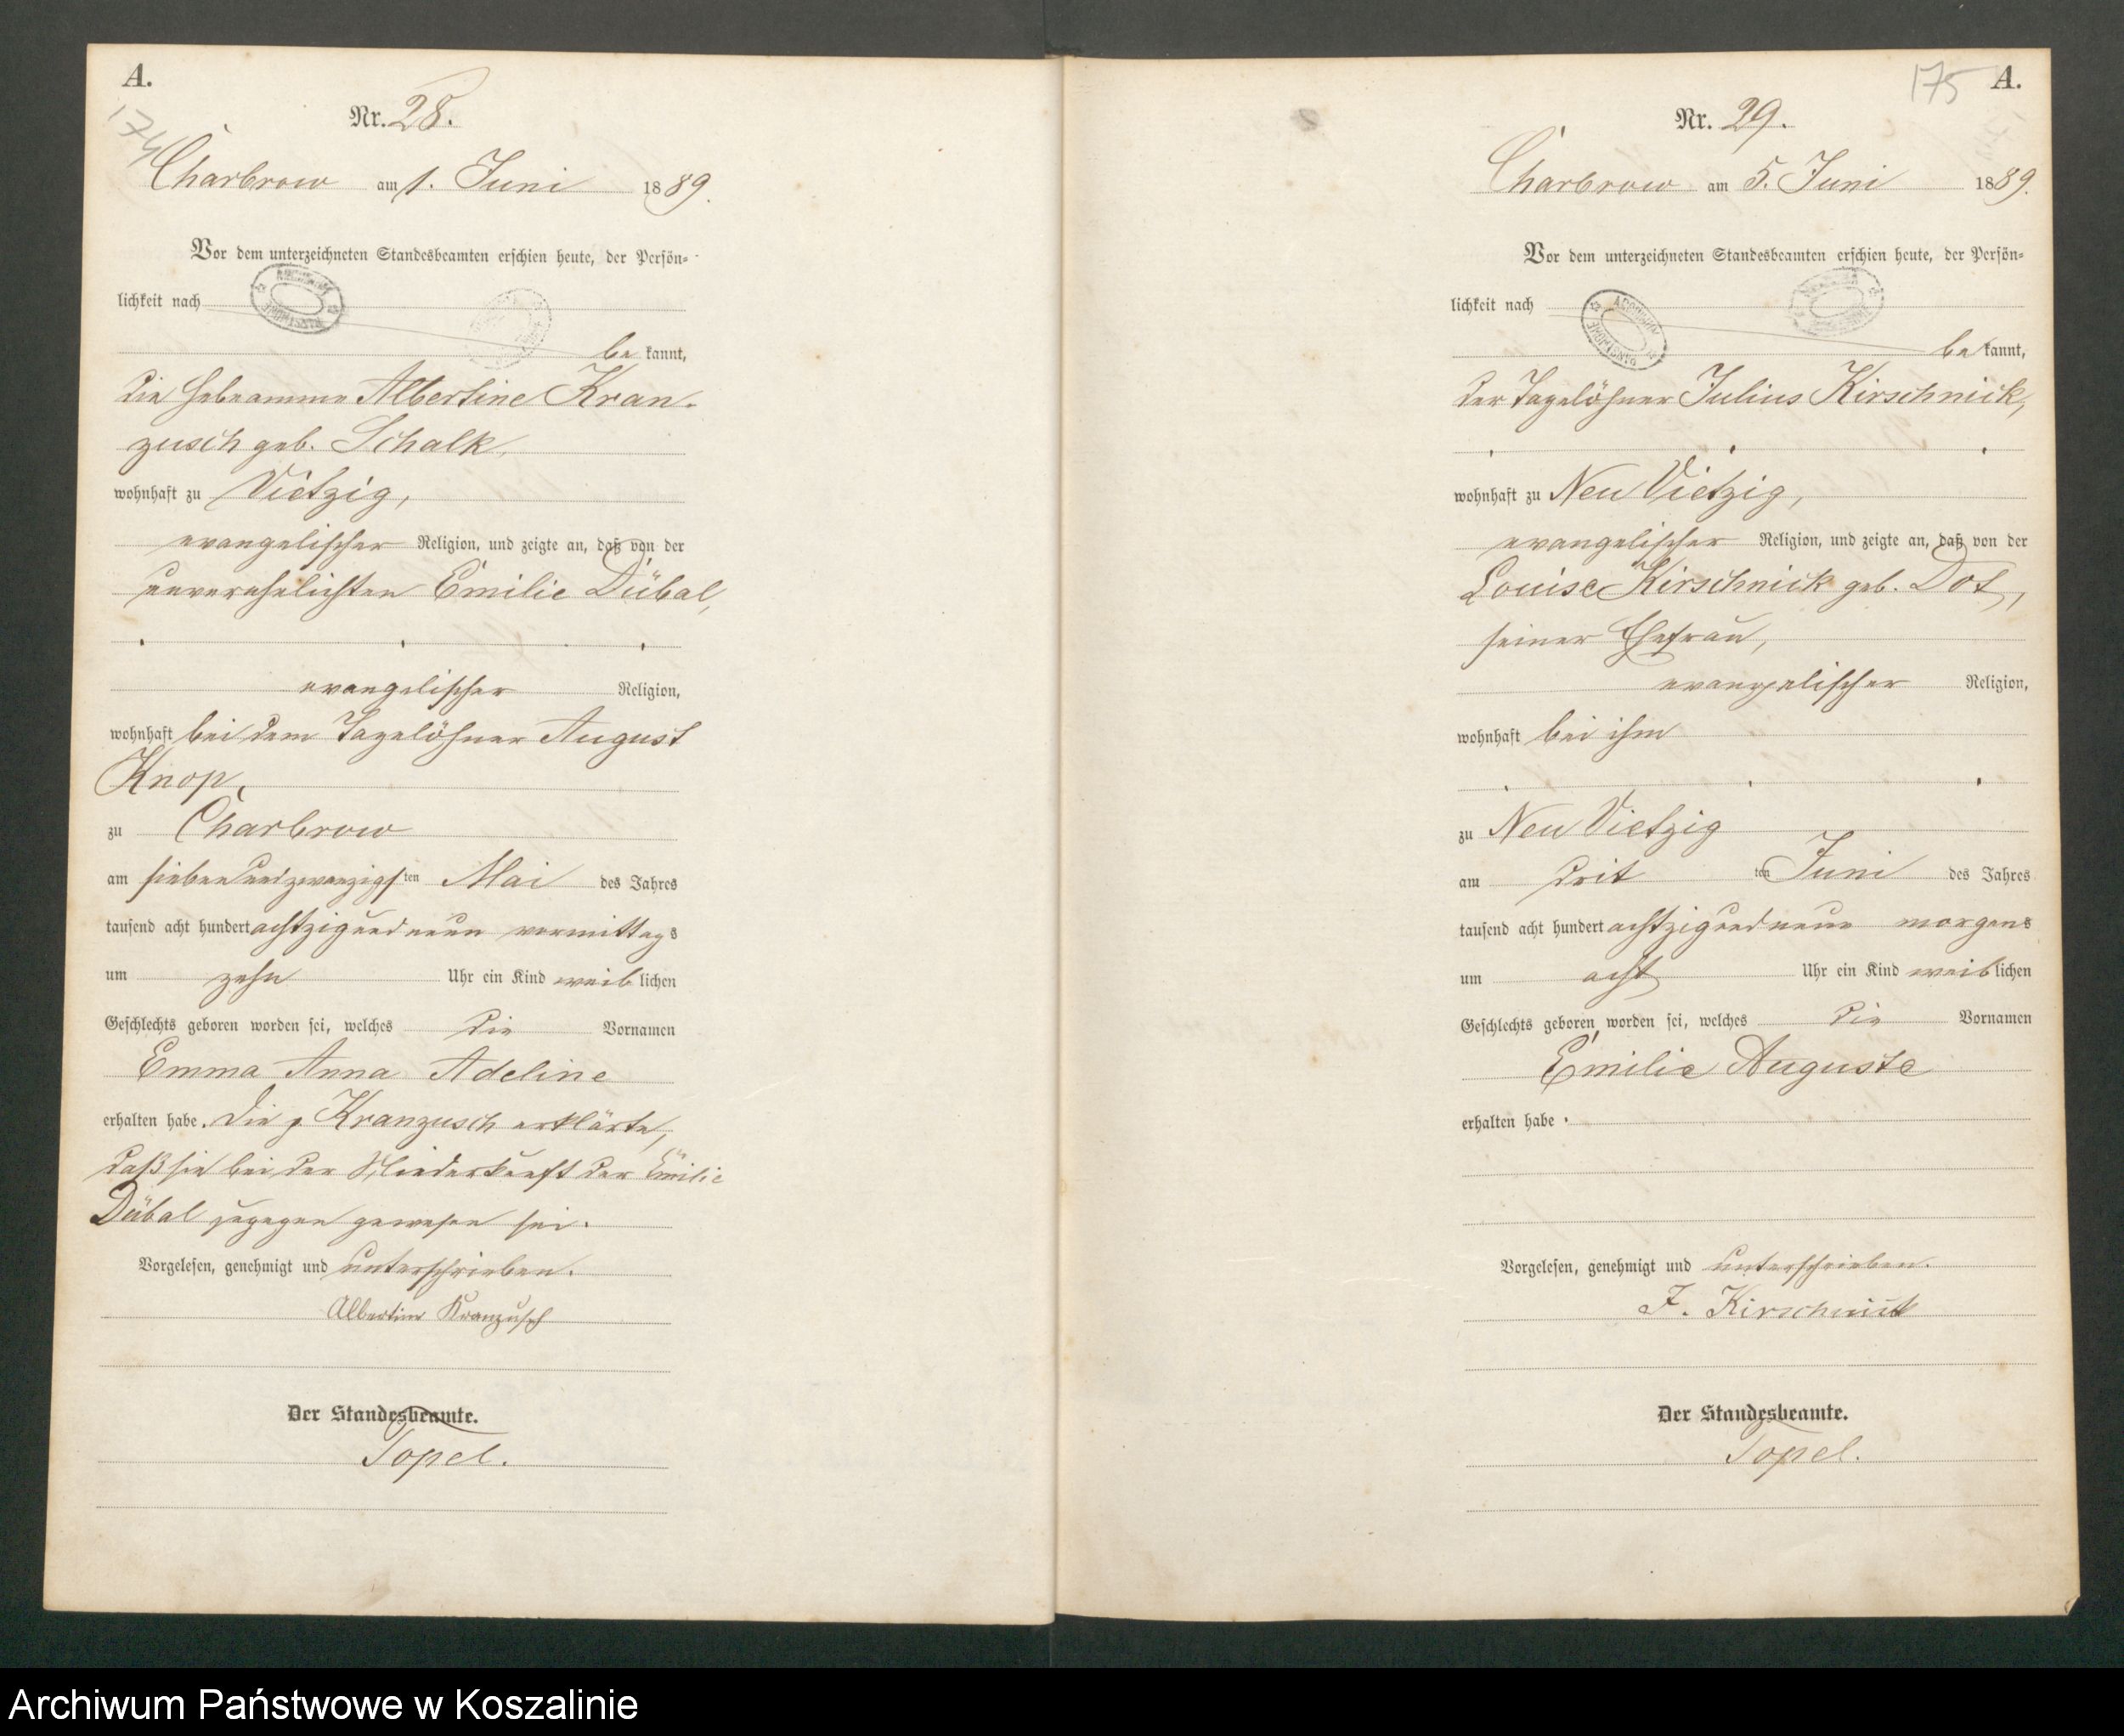 A.
174
Nr. 28.
Charbrow am 1. Juni 1889.
Vor dem unterzeichneten Standesbeamten erschien heute, der Persön-
lichkeit nach
be kannt,
die Hebeamme Albertine Kran-
zusch geb. Schalk,
wohnhaft zu Vietzig,
evangelischer Religion, und zeigte an, daß von der
unverehelichten Emilie Dübal,
evangelischer Religion,
wohnhaft bei dem Tagelöhner August
Knop,
zu Charbrow
am siebenundzwanzigsten Mai des Jahres
tausend acht hundert achtzigundneun vormittags
um zehn Uhr ein Kind weiblichen
Geschlechts geboren worden sei, welches die Vornamen
Emma Anna Adeline
erhalten habe. Die p Kranzusch erklärte,
daß sie bei der Niederkunft der Emilie
Dübal zugegen gewesen sei.
Vorgelesen, genehmigt und unterschrieben.
Albertine Kranzusch
Der Standesbeamte.
Topel.
175 A.
Nr. 29.
Charbrow am 5. Juni 1889.
Vor dem unterzeichneten Standesbeamten erschien heute, der Persön-
lichkeit nach
be kannt,
der Tagelöhner Julius Kirschnick,
wohnhaft zu Neu Vietzig,
evangelischer Religion, und zeigte an, daß von der
Louise Kirschnick geb. Dot,
seiner Ehefrau,
evangelischer Religion,
wohnhaft bei ihm
zu Neu Vietzig
am dritten Juni des Jahres
tausend acht hundert achtzigundneun morgens
um acht Uhr ein Kind weiblichen
Geschlechts geboren worden sei, welches die Vornamen
Emilie Auguste
erhalten habe.
Vorgelesen, genehmigt und unterschrieben.
J. Kirschnick
Der Standesbeamte.
Topel.
Archiwum Państwowe w Koszalinie